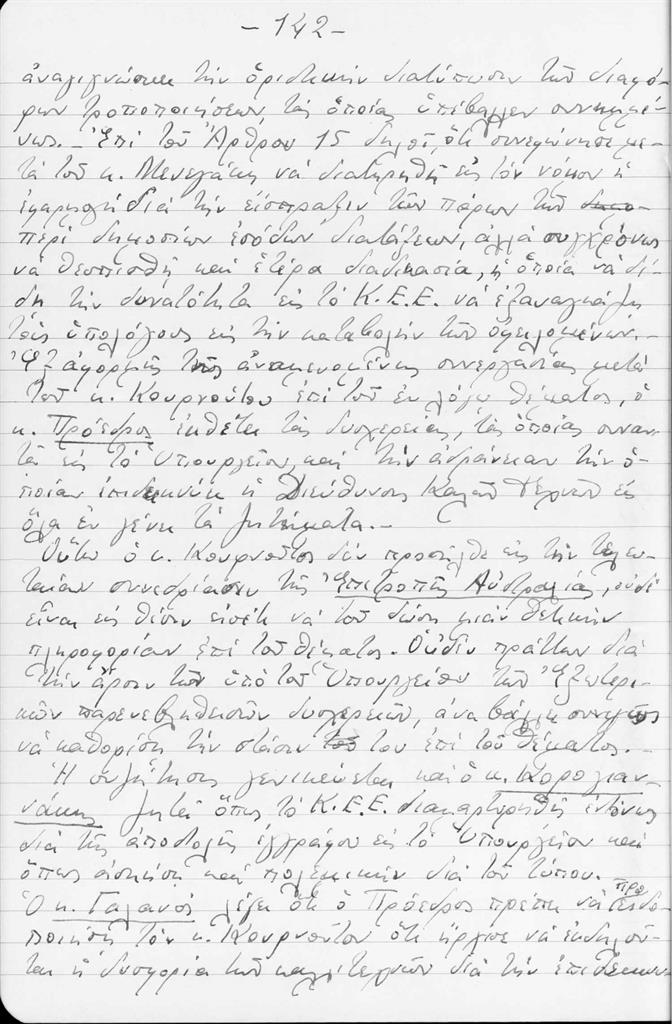 - 142 -
ἀναγιγνώσκει τὴν ὁριστικὴν διατύπωσιν τῶν διαφό-
ρων τροποποιήσεων, τὰς ὁποίας ὑπέβαλλεν συνημμέ-
νως. - Ἐπὶ τοῦ Ἄρθρου 15 δηλοῖ, ὅτι συνεφώνησε με-
τὰ τοῦ κ. Μενεγάκη νὰ διατηρηθῇ εἰς τὸν νόμον ἡ
ἐφαρμογὴ διὰ τὴν εἴσπραξιν τῶν πόρων τῶν
περὶ δημοσίων ἐσόδων διατάξεων, ἀλλὰ συγχρόνως
νὰ θεσπισθῇ καὶ ἑτέρα διαδικασία, ἡ ὁποία νὰ δί-
δῃ τὴν δυνατότητα εἰς τὸ Κ.Ε.Ε. νὰ ἐξαναγκάζῃ
τοὺς ὑπολόγους εἰς τὴν καταβολὴν τῶν ὀφειλομένων. -
Ἐξ ἀφορμῆς τῆς ἀναμενομένης συνεργασίας μετὰ
τοῦ κ. Κουρνούτου ἐπὶ τοῦ ἐν λόγῳ θέματος, ὁ
κ. Πρόεδρος ἐκθέτει τὰς δυσχερείας, τὰς ὁποίας συναν-
τᾷ εἰς τὸ Ὑπουργεῖον, καὶ τὴν ἀδράνειαν τὴν ὁ-
ποίαν ἐπιδεικνύει ἡ Διεύθυνσις Καλῶν Τεχνῶν εἰς
ὅλα ἐν γένει τὰ ζητήματα. -
Οὕτω ὁ κ. Κουρνοῦτος δὲν προσῆλθε εἰς τὴν τελευ-
ταίαν συνεδρίασιν τῆς Ἐπιτροπῆς Αὐστραλίας, οὐδὲ
εἶναι εἰς θέσιν εἰσέτι νὰ τοῦ δώσῃ μίαν θετικὴν
πληροφορίαν ἐπὶ τοῦ θέματος. Οὐδὲν πράττων διὰ
τὴν ἄρσιν τῶν ὑπὸ τοῦ Ὑπουργείου τῶν Ἐξωτερι-
κῶν παρενεβληθεισῶν δυσχερειῶν, ἀναβάλλει συνεχῶς
νὰ καθορίσῃ τὴν στάσιν του ἐπὶ τοῦ θέματος. -
Ἡ συζήτησις γενικεύεται καὶ ὁ κ. Κορογιαν-
νάκης ζητεῖ ὅπως τὸ Κ.Ε.Ε. διαμαρτυρηθῇ ἐντόνως
διὰ τῆς ἀποστολῆς ἐγγράφου εἰς τὸ Ὑπουργεῖον καὶ
ὅπως ἀσκήσῃ καὶ πολεμικὴν διὰ τοῦ τύπου.
Ὁ κ. Γαλανὸς λέγει ὅτι ὁ Πρόεδρος πρέπει νὰ προειδο-
ποιήσῃ τὸν κ. Κουρνοῦτον ὅτι ἤρχισε νὰ ἐκδηλοῦ-
ται ἡ δυσφορία τῶν καλλιτεχνῶν διὰ τὴν